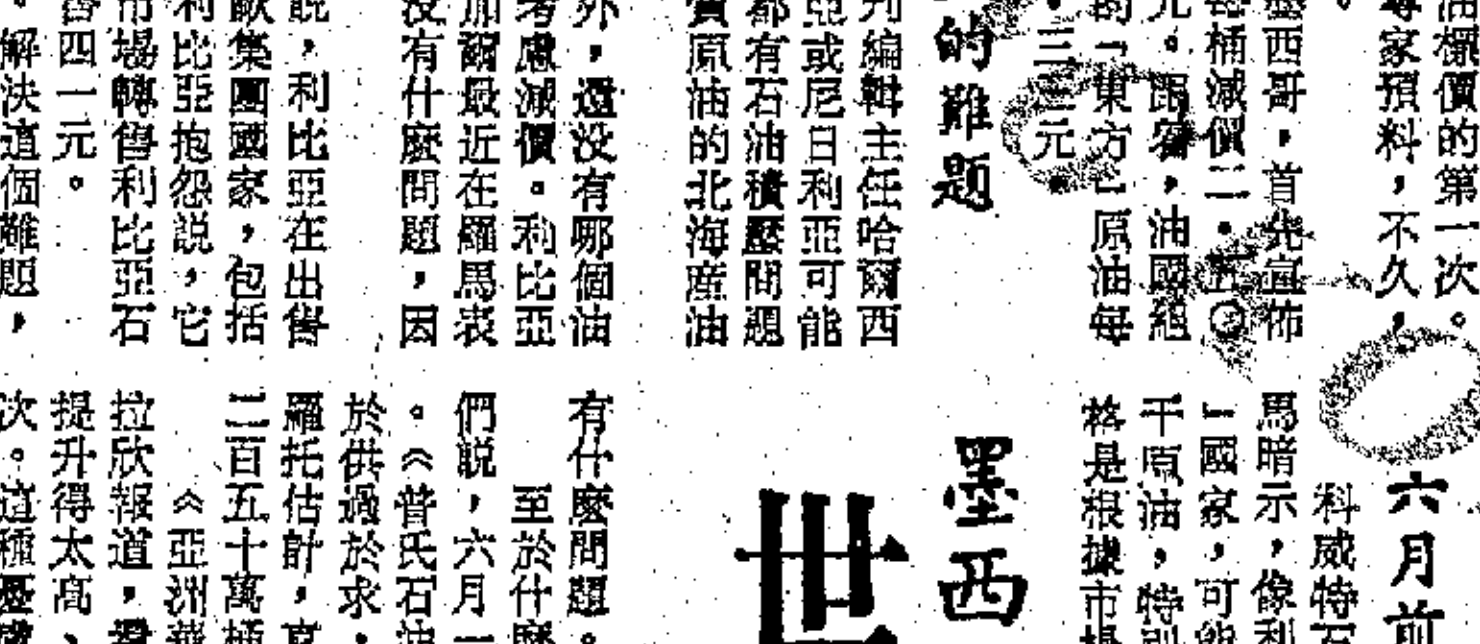 油欄價的第一次。
專家預料，不久，
。
墨西哥，首先宣佈
每桶減價二·五〇
元。跟着，油國組
的「東方」原油每
三三元。
的難題
刊編輯主任哈爾西
亞或尼日利亞可能
都有石油積壓問題
質原油的北海產油
外，還没有哪個油
考慮減價。利比亞
加爾最近在羅馬表
没有什麼問題，因
說，利比亞在出售
歐集團國家，包括
利比亞抱怨說，它
市場轉售利比亞石
售四一元。
。解決這個難題，
六月前
科威特石
馬暗示，像利
」國家，可能
干原油，特別
格是根據市場
墨西
世
有什麼問題。
至於什麼
們說，六月一
。《普氏石油
於供過於求，
羅托估計，
二百五十萬桶
《亞洲
拉欣報道，
提升得太高、
次。這種憂